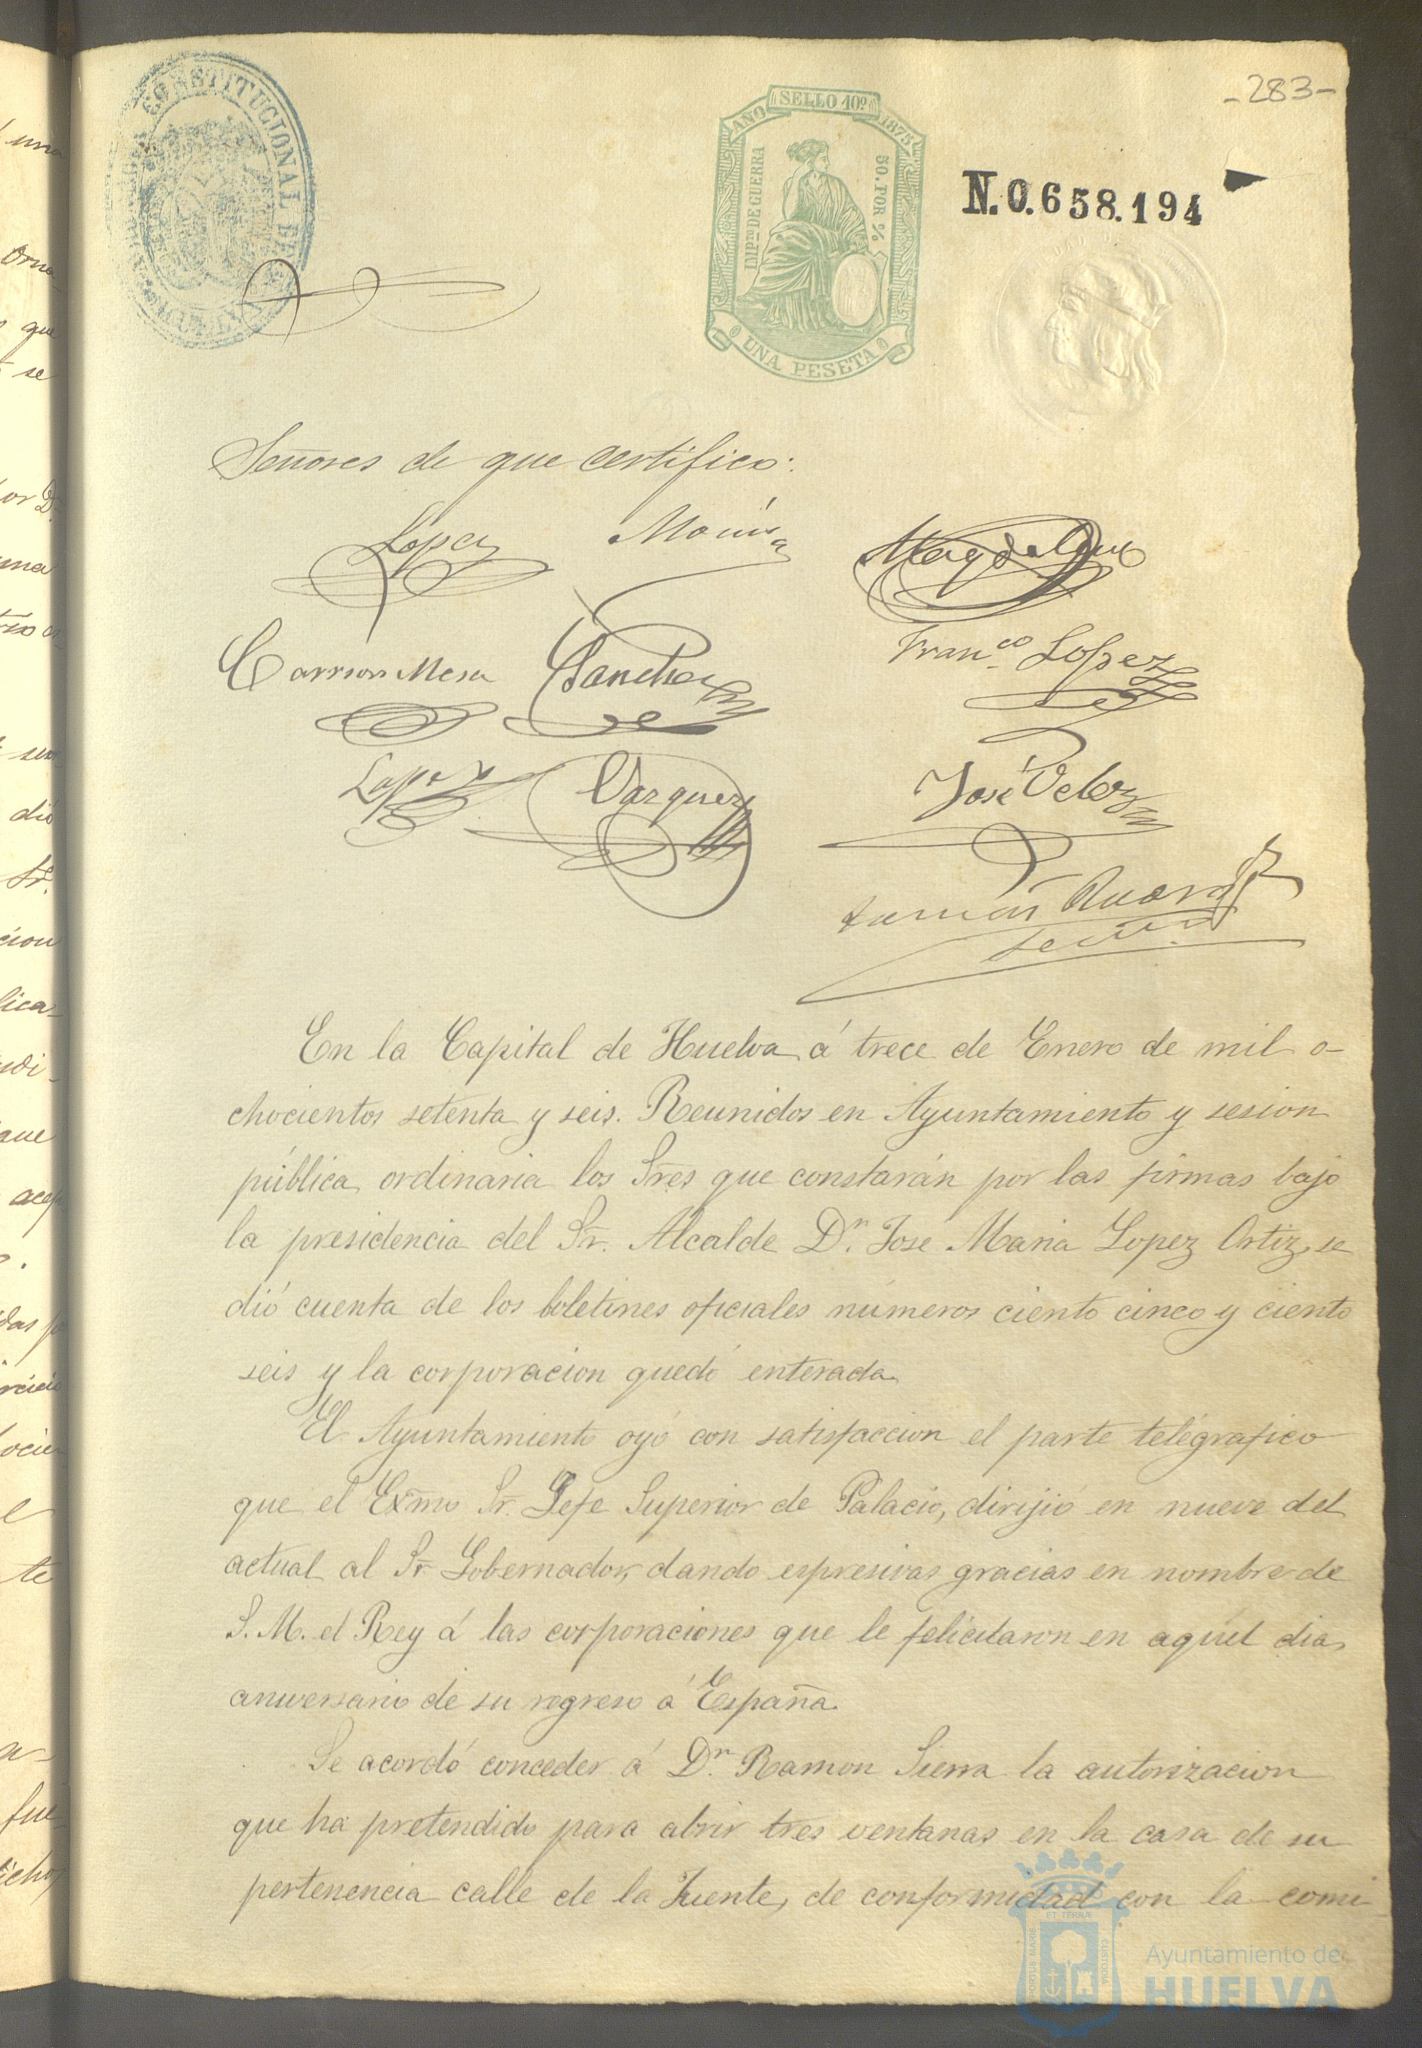 -283-
CONSTITUCIONAL DE
SELLO 10º
AÑO 1875
IMPto DE GUERRA
50. POR %
UNA PESETA
N. 0.658.194
Señores de que certifico:
Lopez Mora Magdalena
Carrion Mesa Sanchez Franco Lopez
Lopez Vazquez José Velez
En la Capital de Huelva á trece de Enero de mil o-
chocientos setenta y seis. Reunidos en Ayuntamiento y sesion
pública ordinaria los Sres que constarán por las firmas bajo
la presidencia del Sr. Alcalde Dn. Jose Maria Lopez Ortiz, se
dió cuenta de los boletines oficiales números ciento cinco y ciento
seis y la corporacion quedó enterada.
El Ayuntamiento oyó con satisfaccion el parte telégrafico
que el Exmo Sr. Jefe Superior de Palacio, dirijió en nueve del
actual al Sr Gobernador, dando espresivas gracias en nombre de
S. M. el Rey á las corporaciones que le felicitaron en aquel dia,
aniversario de su regreso á España.
Se acordó conceder á Dn. Ramon Sierra la autorizacion
que ha pretendido para abrir tres ventanas en la casa de su
pertenencia calle de la Fuente, de conformidad con la comi
Ayuntamiento de
HUELVA